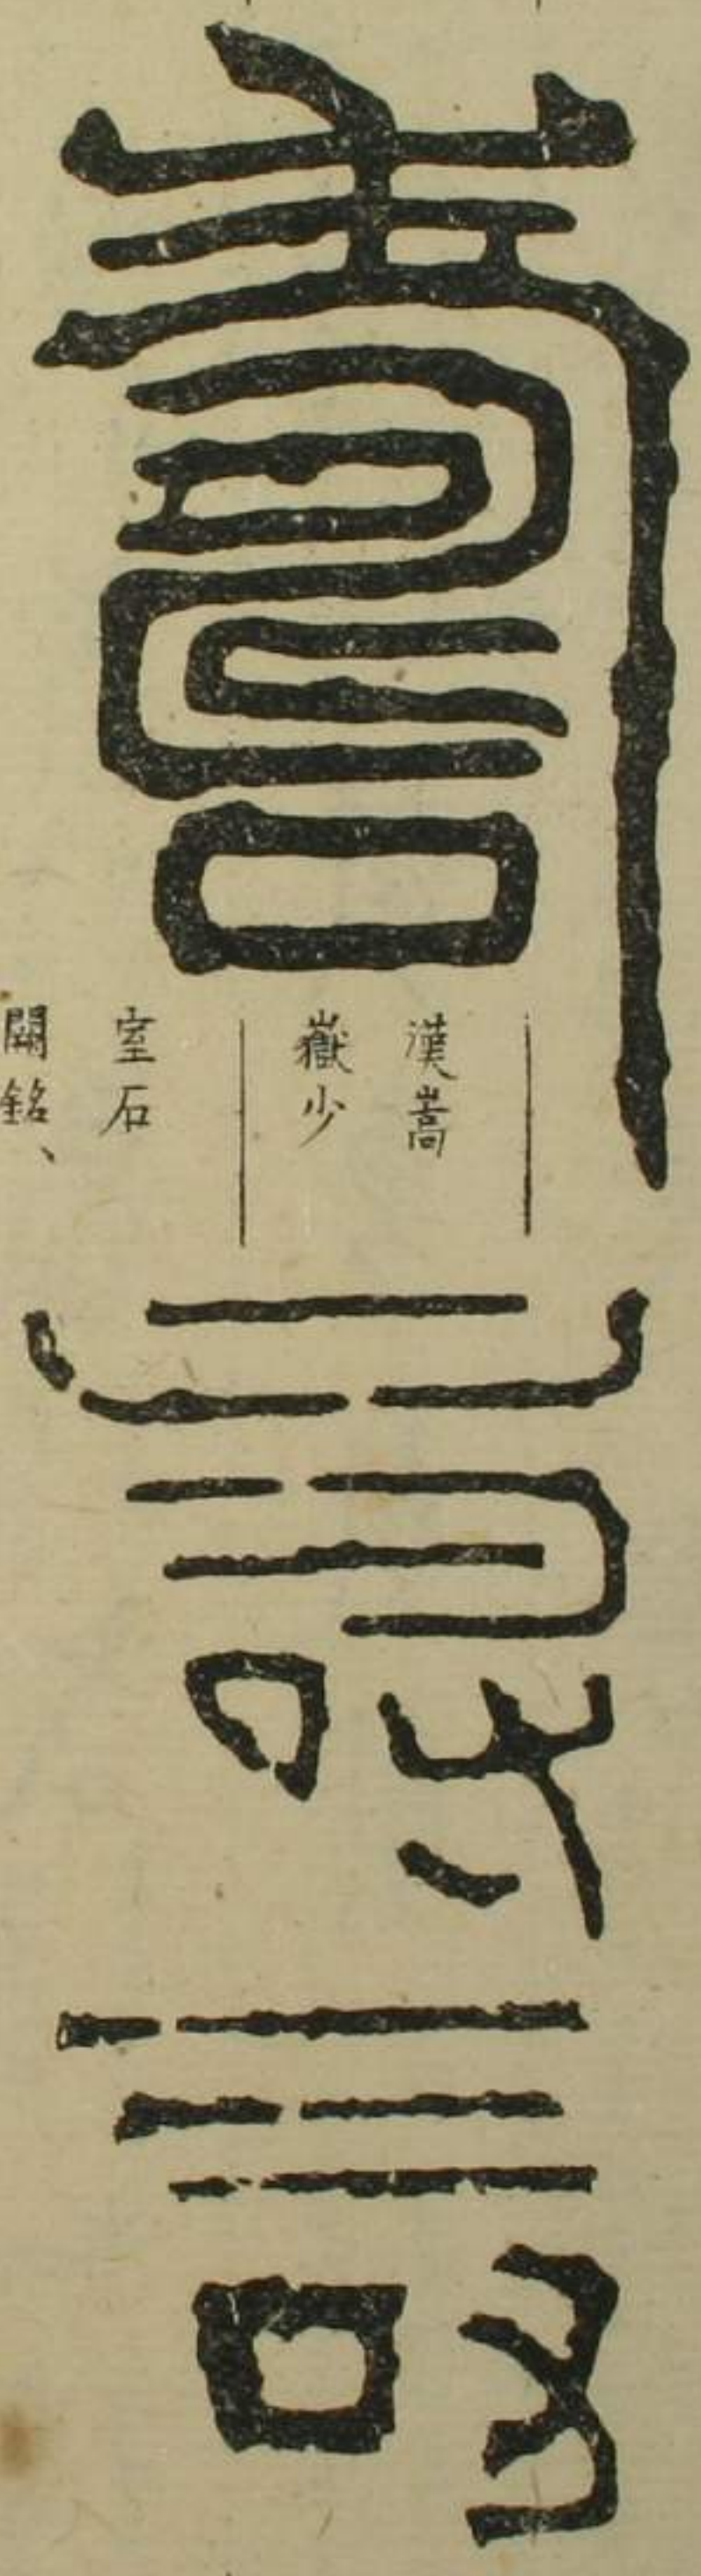 壽
漢嵩
嶽少
室石
闕銘、
壽
壽